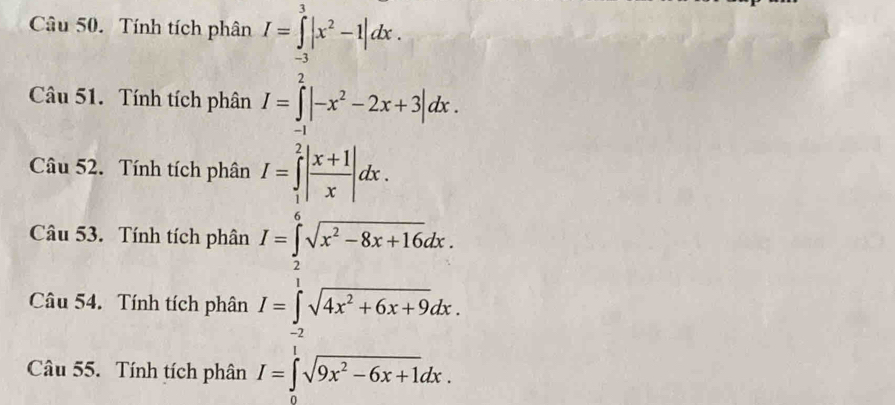 Câu 50. Tính tích phân $I = \int_{-3}^{3} |x^2 - 1| dx$.
Câu 51. Tính tích phân $I = \int_{-1}^{2} |-x^2 - 2x + 3| dx$.
Câu 52. Tính tích phân $I = \int_{1}^{2} \left|\frac{x+1}{x}\right| dx$.
Câu 53. Tính tích phân $I = \int_{2}^{6} \sqrt{x^2 - 8x + 16} dx$.
Câu 54. Tính tích phân $I = \int_{-2}^{1} \sqrt{4x^2 + 6x + 9} dx$.
Câu 55. Tính tích phân $I = \int_{0}^{1} \sqrt{9x^2 - 6x + 1} dx$.